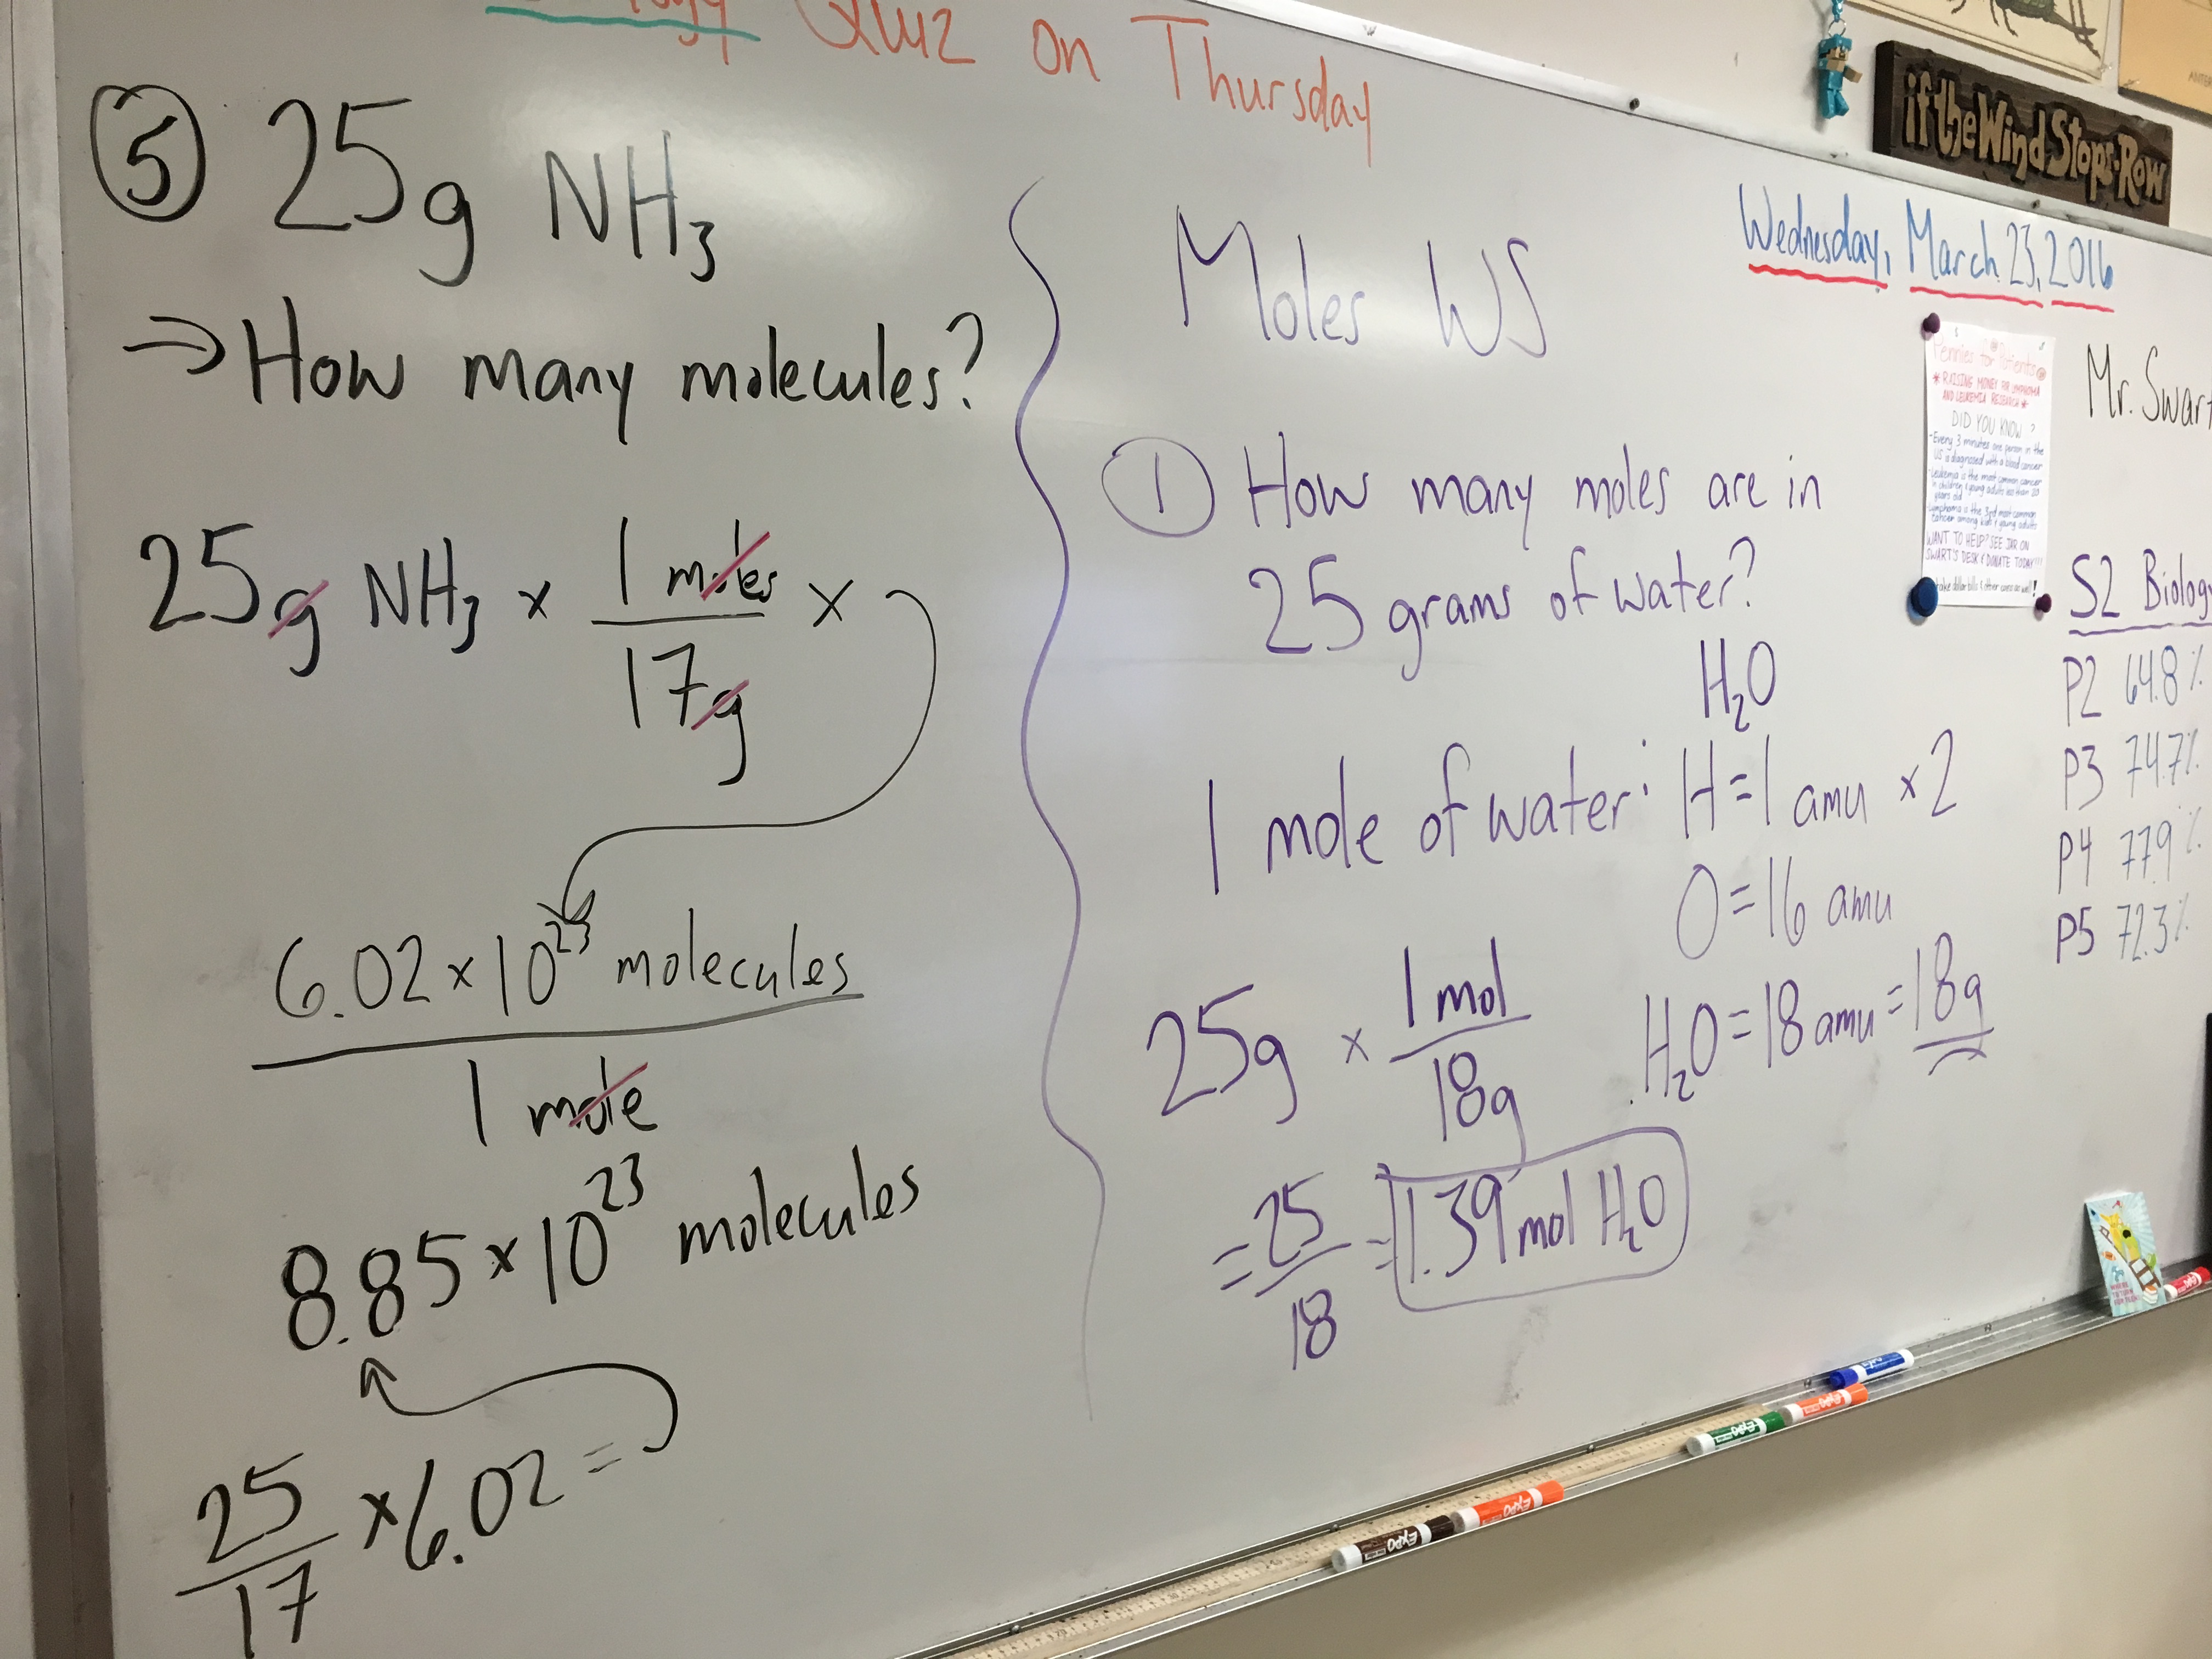 Quiz on Thursday
5 25g NH₃
⇒ How many molecules?
25g NH₃ × 1 moles / 17g ×
6.02 × 10²³ molecules
1 mole
8.85 × 10²³ molecules
25/17 × 6.02 =
Moles WS
1 How many moles are in
25 grams of water?
H₂O
1 mole of water: H = 1 amu × 2
O = 16 amu
H₂O = 18 amu = 18g
25g × 1 mol / 18g
= 25/18 = 1.39 mol H₂O
if the Wind Stops·Row
Wednesday, March 23, 2016
Pennies for Patients
* RAISING MONEY FOR LYMPHOMA
AND LEUKEMIA RESEARCH *
DID YOU KNOW?
- Every 3 minutes one person in the
US is diagnosed with a blood cancer
- Leukemia is the most common cancer
in children & young adults less than 20
years old
- Lymphoma is the 3rd most common
cancer among kids & young adults
WANT TO HELP? SEE JAR ON
SWART'S DESK & DONATE TODAY!!!
Mr. Swart
S2 Biology
P2 64.8%
P3 74.7%
P4 77.9%
P5 72.3%
EXPO
EXPO
EXPO
EXPO
EXPO